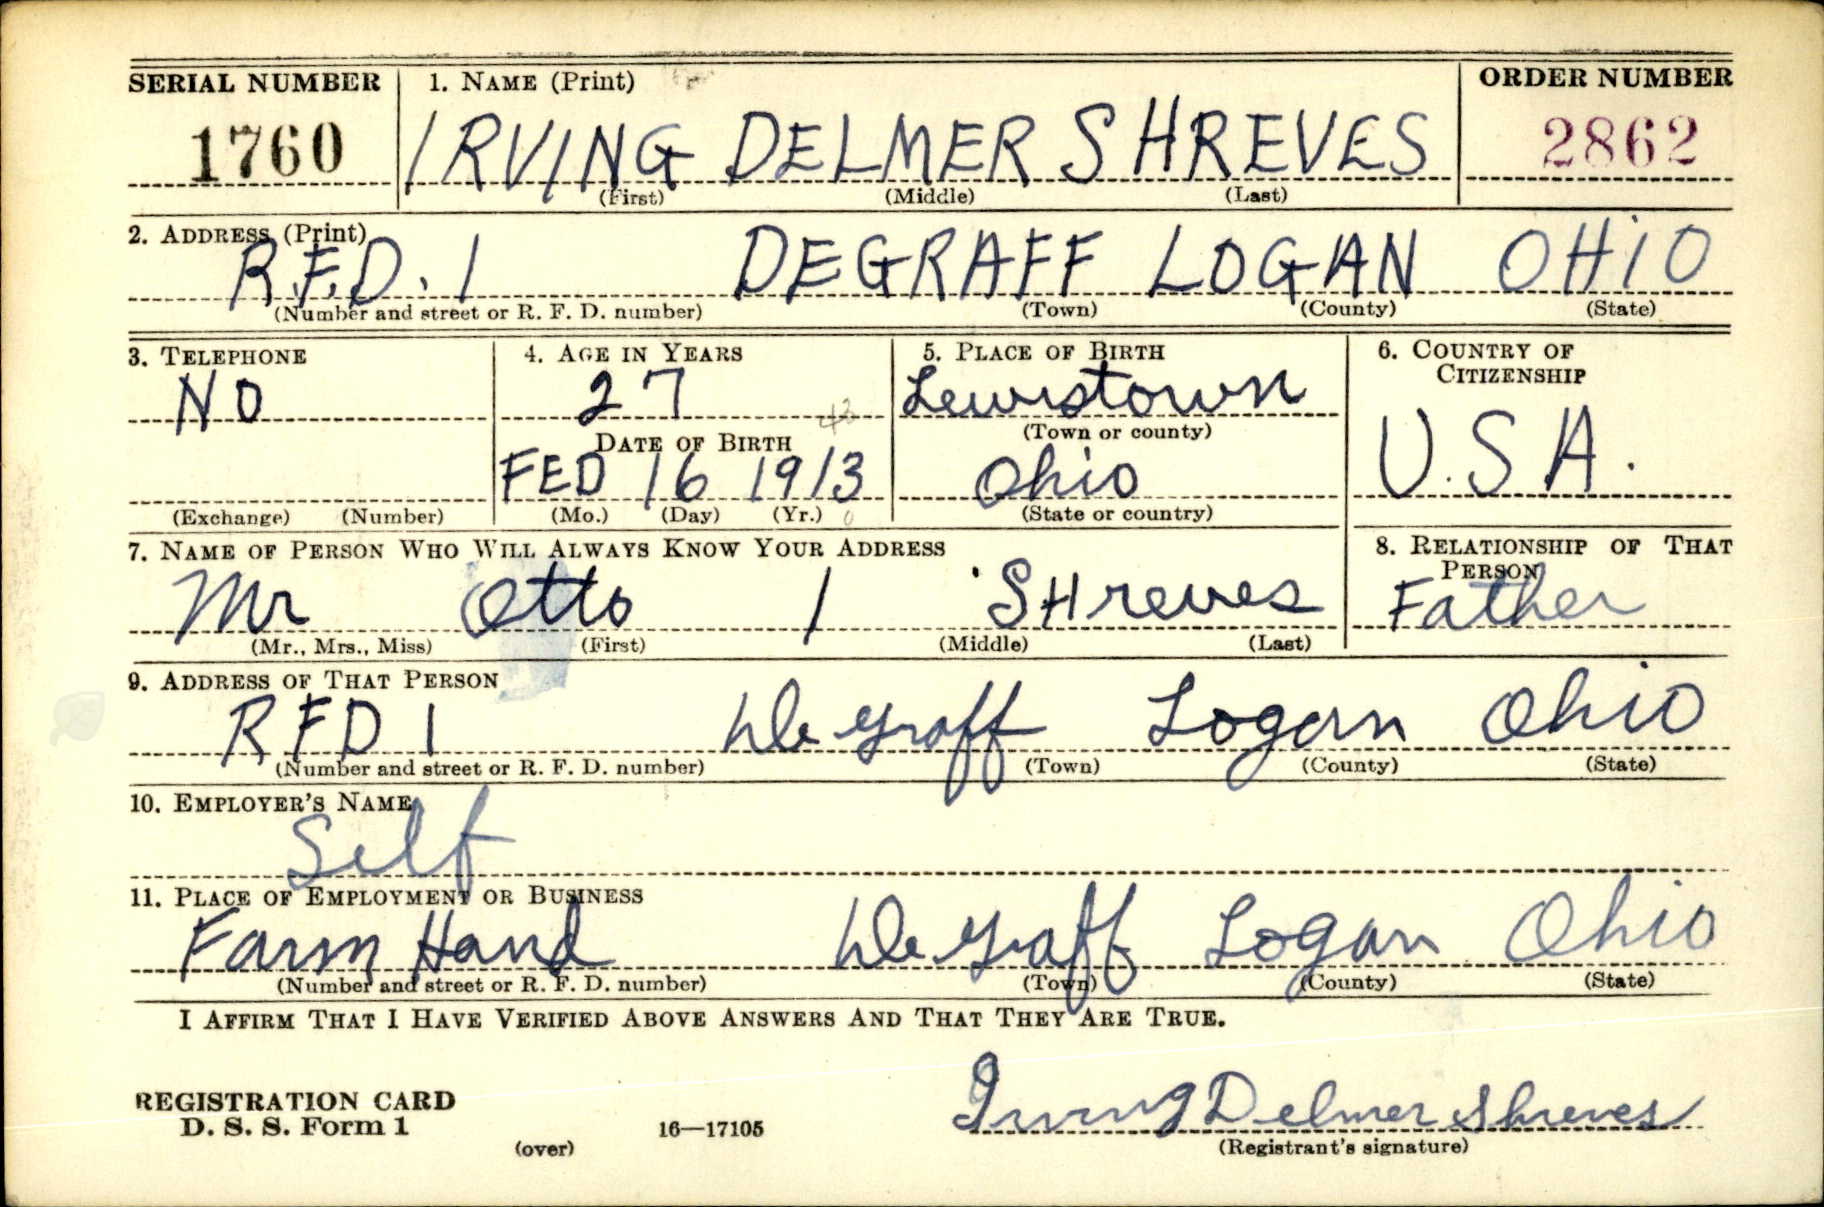 SERIAL NUMBER 1. NAME (Print) ORDER NUMBER
1760 IRVING DELMER SHREVES 2862
(First) (Middle) (Last)
2. ADDRESS (Print)
R.F.D. 1 DEGRAFF LOGAN OHiO
(Number and street or R. F. D. number) (Town) (County) (State)
3. TELEPHONE 4. AGE IN YEARS 5. PLACE OF BIRTH 6. COUNTRY OF CITIZENSHIP
NO 27 Lewistown U.S.A.
(Town or county)
DATE OF BIRTH
FED 16 1913 Ohio
(Exchange) (Number) (Mo.) (Day) (Yr.) (State or country)
7. NAME OF PERSON WHO WILL ALWAYS KNOW YOUR ADDRESS 8. RELATIONSHIP OF THAT PERSON
Mr Otto I SHreves Father
(Mr., Mrs., Miss) (First) (Middle) (Last)
9. ADDRESS OF THAT PERSON
RFD 1 De graff Logan Ohio
(Number and street or R. F. D. number) (Town) (County) (State)
10. EMPLOYER'S NAME
Self
11. PLACE OF EMPLOYMENT OR BUSINESS
Farm Hand De graff Logan Ohio
(Number and street or R. F. D. number) (Town) (County) (State)
I AFFIRM THAT I HAVE VERIFIED ABOVE ANSWERS AND THAT THEY ARE TRUE.
REGISTRATION CARD
D. S. S. Form 1
(over) 16—17105
Irving Delmer Shreves
(Registrant's signature)